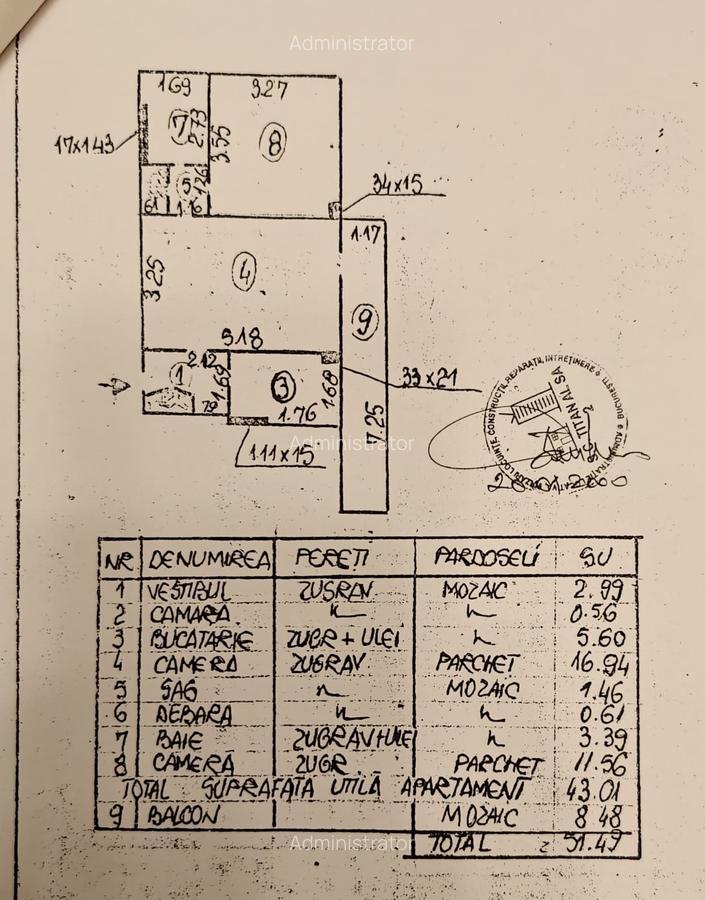 Administrator
169
3.27
7
2.73
3.55
8
17x143
5
1.26
34x15
61
1.16
1.17
3.25
4
9
5.18
2.12
1
1.69
3
1.68
33x21
79
1.76
7.25
Administrator
1.11x15
TITAN AL SA
BUCURESTI
NR DENUMIREA PERETI PARDOSELI SU
1 VESTIBUL ZUGRAV MOZAIC 2.99
2 CAMARA 0.56
3 BUCATARIE ZUGR + ULEI 5.60
4 CAMERA ZUGRAV PARCHET 16.94
5 SAS MOZAIC 1.46
6 DEBARA 0.61
7 BAIE ZUGRAV+ULEI 3.39
8 CAMERĂ ZUGR PARCHET 11.56
TOTAL SUPRAFATA UTILĂ APARTAMENT 43.01
9 BALCON MOZAIC 8 48
TOTAL = 51.49
Administrator